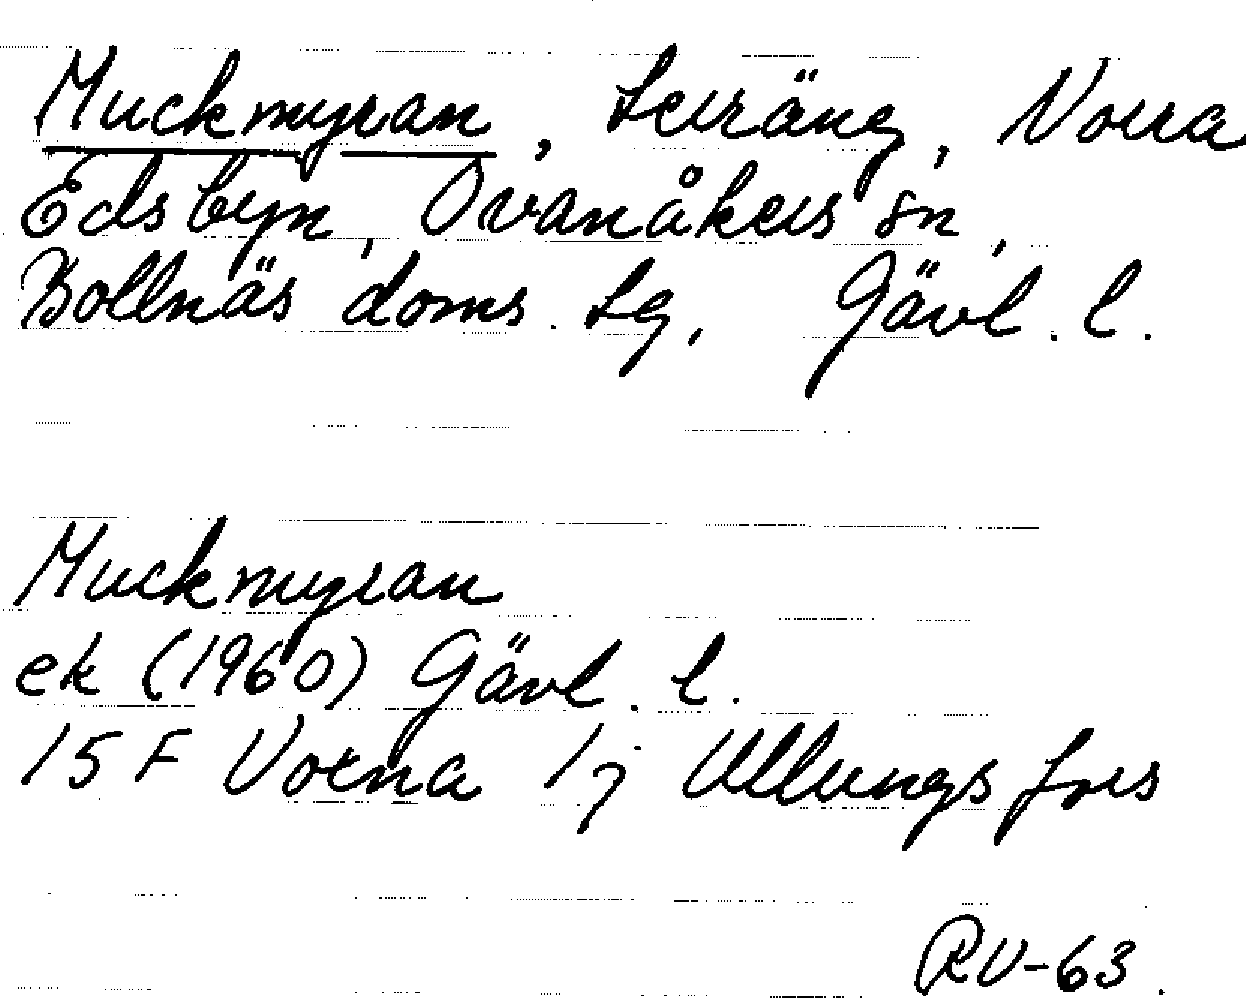 Muckmyran, teräng, Norra
Edsbyn, Ovanåkers sn,
Bollnäs doms. tg, Gävl. l.
Muckmyran
ek (1960) Gävl. l.
15 F Voxna 1j Ullungsfors
RV-63.